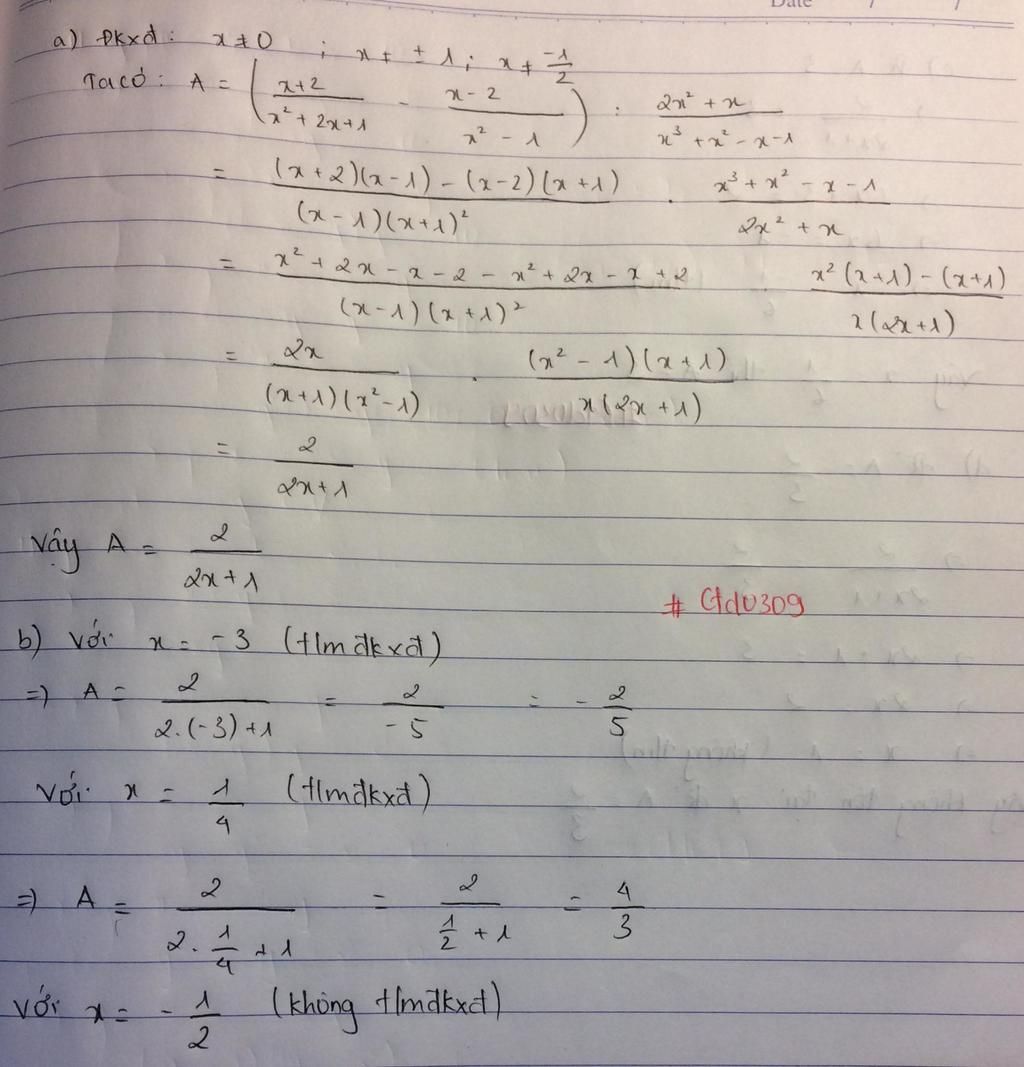 Date / /
a) Đkxđ: x ≠ 0 ; x ≠ ± 1 ; x ≠ -1/2
Ta có: A = ( (x+2)/(x² + 2x+1) - (x-2)/(x² - 1) ) : (2x² + x)/(x³ + x² - x-1)
= ((x+2)(x-1) - (x-2)(x+1))/((x-1)(x+1)²) . (x³ + x² - x - 1)/(2x² + x)
= (x² + 2x - x - 2 - x² + 2x - x + 2)/((x-1)(x+1)²) . (x²(x+1) - (x+1))/(x(2x+1))
= 2x/((x+1)(x²-1)) . ((x² - 1)(x+1))/(x(2x+1))
= 2/(2x+1)
Vậy A = 2/(2x+1)
# Ctd0309
b) Với x = -3 (t/m đkxđ)
=) A = 2/(2.(-3)+1) = 2/(-5) = - 2/5
Với x = 1/4 (t/m đkxđ)
=) A = 2/(2. 1/4 + 1) = 2/(1/2 + 1) = 4/3
Với x = - 1/2 (không t/m đkxđ)